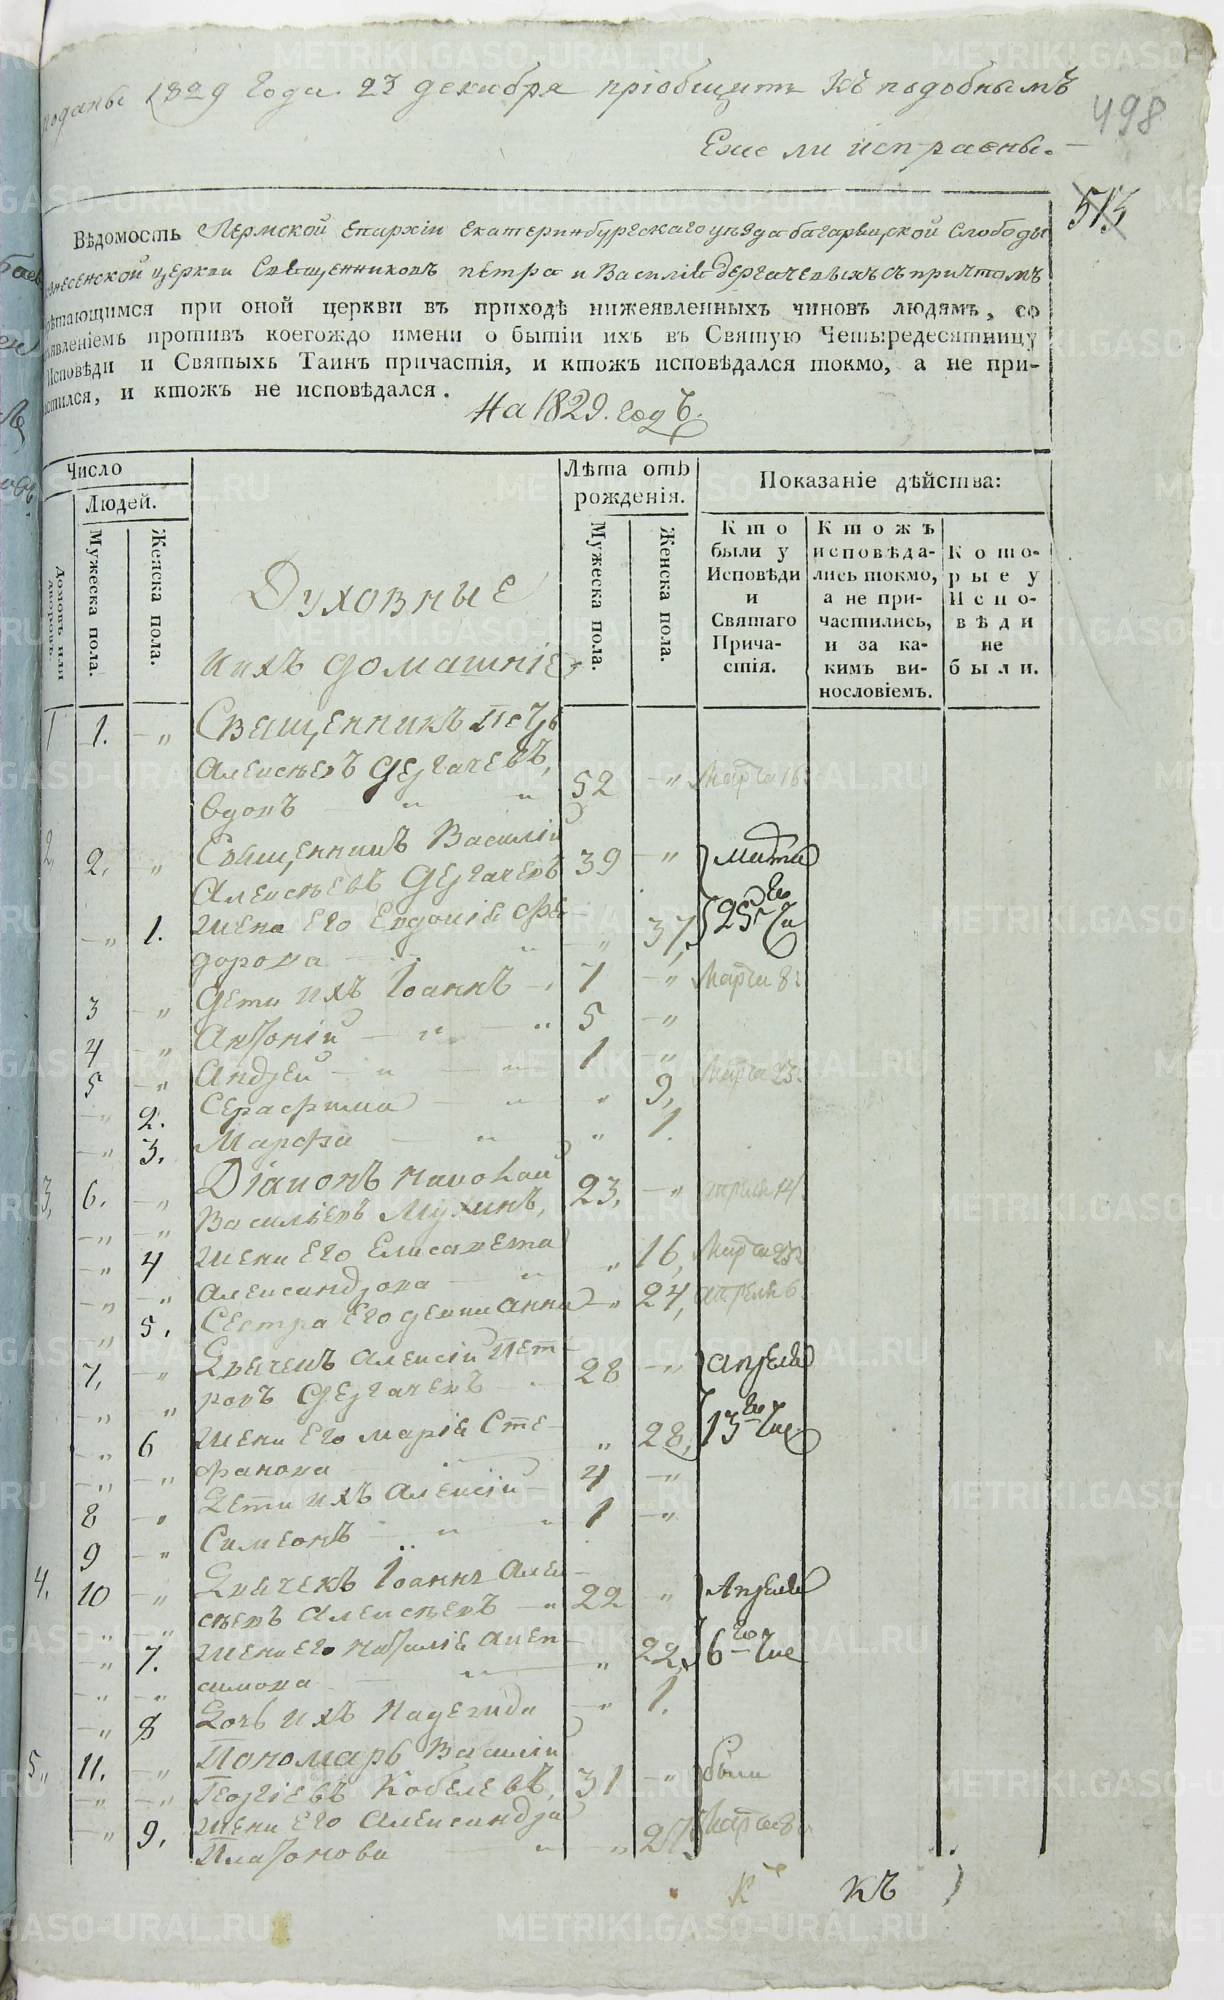 поданы 1829 года. 23 декабря приобщить къ подобнымъ
Ежели исправны.
498
513
Вѣдомость Пермской Епархіи Екатеринбургскаго уѣзда багаряцкой Слободы
Вознесенской церкви Священниковъ петра и Василія Дергачевыхъ съ причтомъ
обрѣтающимся при оной церкви въ приходѣ нижеявленныхъ чиновъ людямъ, со
изъявленіемъ противъ коегождо имени о бытіи ихъ въ Святую Четыредесятницу
Исповѣди и Святыхъ Таинъ причастія, и ктожъ исповѣдался токмо, а не при-
частился, и ктожъ не исповѣдался.
На 1829. годъ.
Число
Людей.
Домовъ или дворовъ.
Мужеска пола.
Женска пола.
Духовные
ихъ домашніе
Лѣта отъ
рожденія.
Мужеска пола.
Женска пола.
Показаніе дѣйства:
Кто
были у
Исповѣди
и
Святаго
Прича-
стія.
Ктожъ
исповѣда-
лись токмо,
а не при-
частились,
и за ка-
кимъ ви-
нословіемъ.
Кото-
рые у
Испо-
вѣди
не
были.
1 1. — „ Священникъ Петръ
Алексѣевъ Дергачевъ, 52 — „ Марта 16
вдовъ „ „
2 2. „ Священникъ Василій 39 — „ Марта
Алексѣевъ Дергачевъ
— „ 1. Жена Его Евдокія Фе- „ 37, 25го Чи
дорова
3 — „ дети ихъ Іоаннъ — 7 — „ Марта 8
4 — „ Антоній — „ — „ 5 — „
5 — „ Андрей — „ — „ 1 — „
— „ 2. Серафима — „ „ 9, Марта 25
— „ 3. Марфа — „ „ 1.
3, 6. — „ Діаконъ Николай 23, — „ апреля 14
— „ — „ Васильевъ Мухинъ,
— „ 4 Жена Его Елисавета „ 16, Марта 25
— „ — „ александрова — „
„ 5. Сестра Его девица Анна — „ 24, апреля 6
7, — „ Дьячекъ Алексій Пет- 28 — „ Апреля
— „ „ ровъ Дергачевъ
— „ 6 Жена Его Марія Сте- „ 28, 13го Чис
— „ — „ фанова
8 — „ Дети ихъ Алексій — 4 — „
9 — „ Симеонъ — „ „ 1 — „
4. 10 — „ Дьячекъ Іоаннъ Алек- 22 „ Апреля
— „ — „ сѣевъ Алексѣевъ — „
— „ 7. Жена Его Наталія „ 22, 6го Чис
— „ — „ симова „
— „ 8 Дочь ихъ Надежда — „ 1.
5„ 11. — „ Пономарь Василій были
— „ — „ Георгіевъ Кобелевъ, 31 — „
— „ 9. Жена Его Александра Марта 8
Платонова „ — „ 25
къ